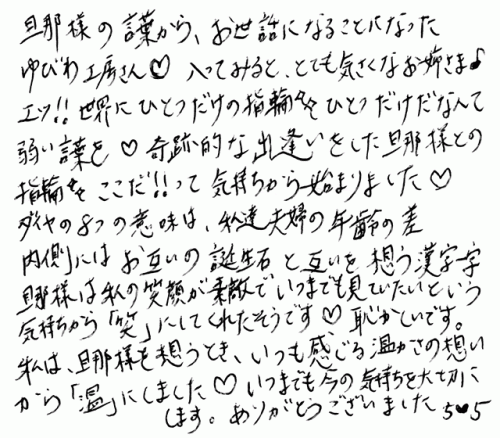 旦那様の言葉から、お世話になることになった
ゆびわ工房さん♡ 入ってみると、とても気さくなお姉さま♪
エッ!! 世界にひとつだけの指輪々々ひとつだけだなんて
弱い言葉を♡奇跡的な出逢いをした旦那様との
指輪々々ここだ!!って気持ちから始まりました♡
ダイヤの8つの意味は、私達夫婦の年齢の差
内側にはお互いの誕生石と互いを想う漢字一字
旦那様は私の笑顔が素敵でいつまでも見ていたいという
気持ちから「笑」にしてくれたそうです♡恥かしいです。
私は、旦那様を想うとき、いつも感じる温かさの想い
から「温」にしました♡いつまでも今の気持ちを大切に
します。ありがとうございました 5♥5